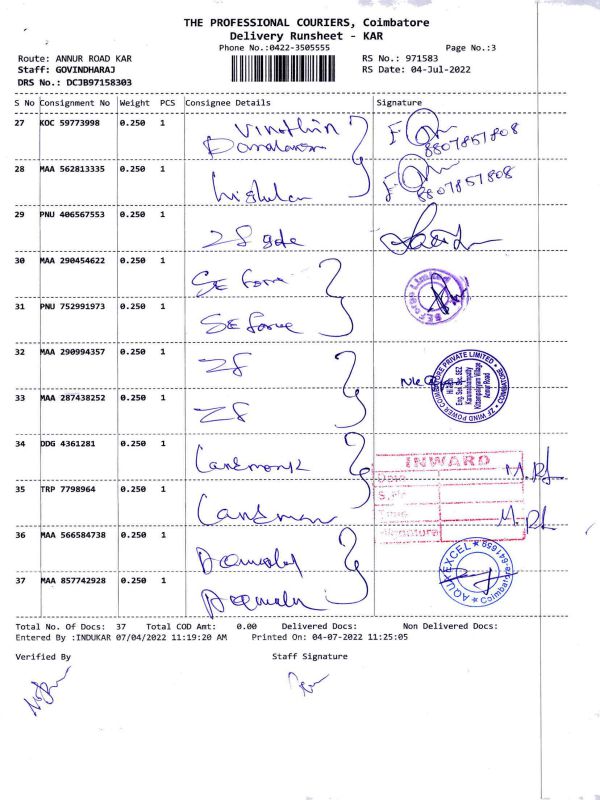 THE PROFESSIONAL COURIERS, Coimbatore
Delivery Runsheet - KAR
Phone No.:0422-3505555
Page No.:3
Route: ANNUR ROAD KAR
RS No.: 971583
Staff: GOVINDHARAJ
RS Date: 04-Jul-2022
DRS No.: DCJB97158303
S No Consignment No Weight PCS Consignee Details Signature
27 KOC 59773998 0.250 1 Vinothin
8807857808
28 MAA 562813335 0.250 1
8807857808
29 PNU 406567553 0.250 1 ZF
30 MAA 290454622 0.250 1 SE Force
31 PNU 752991973 0.250 1 SE Force
32 MAA 290994357 0.250 1 ZF
ZF WIND POWER COIMBATORE PRIVATE LIMITED
Hi Tech
Eng. Sec. Spc. SEZ
Karumathampatty
Kittampalayam Village
Annur Road
33 MAA 287438252 0.250 1 ZF
34 DDG 4361281 0.250 1
INWARD
Date
35 TRP 7798964 0.250 1
Time
Signature
36 MAA 566584738 0.250 1
AQUAEXCEL
Coimbatore-641659
37 MAA 857742928 0.250 1
Total No. Of Docs: 37 Total COD Amt: 0.00 Delivered Docs: Non Delivered Docs:
Entered By :INDUKAR 07/04/2022 11:19:20 AM Printed On: 04-07-2022 11:25:05
Verified By Staff Signature